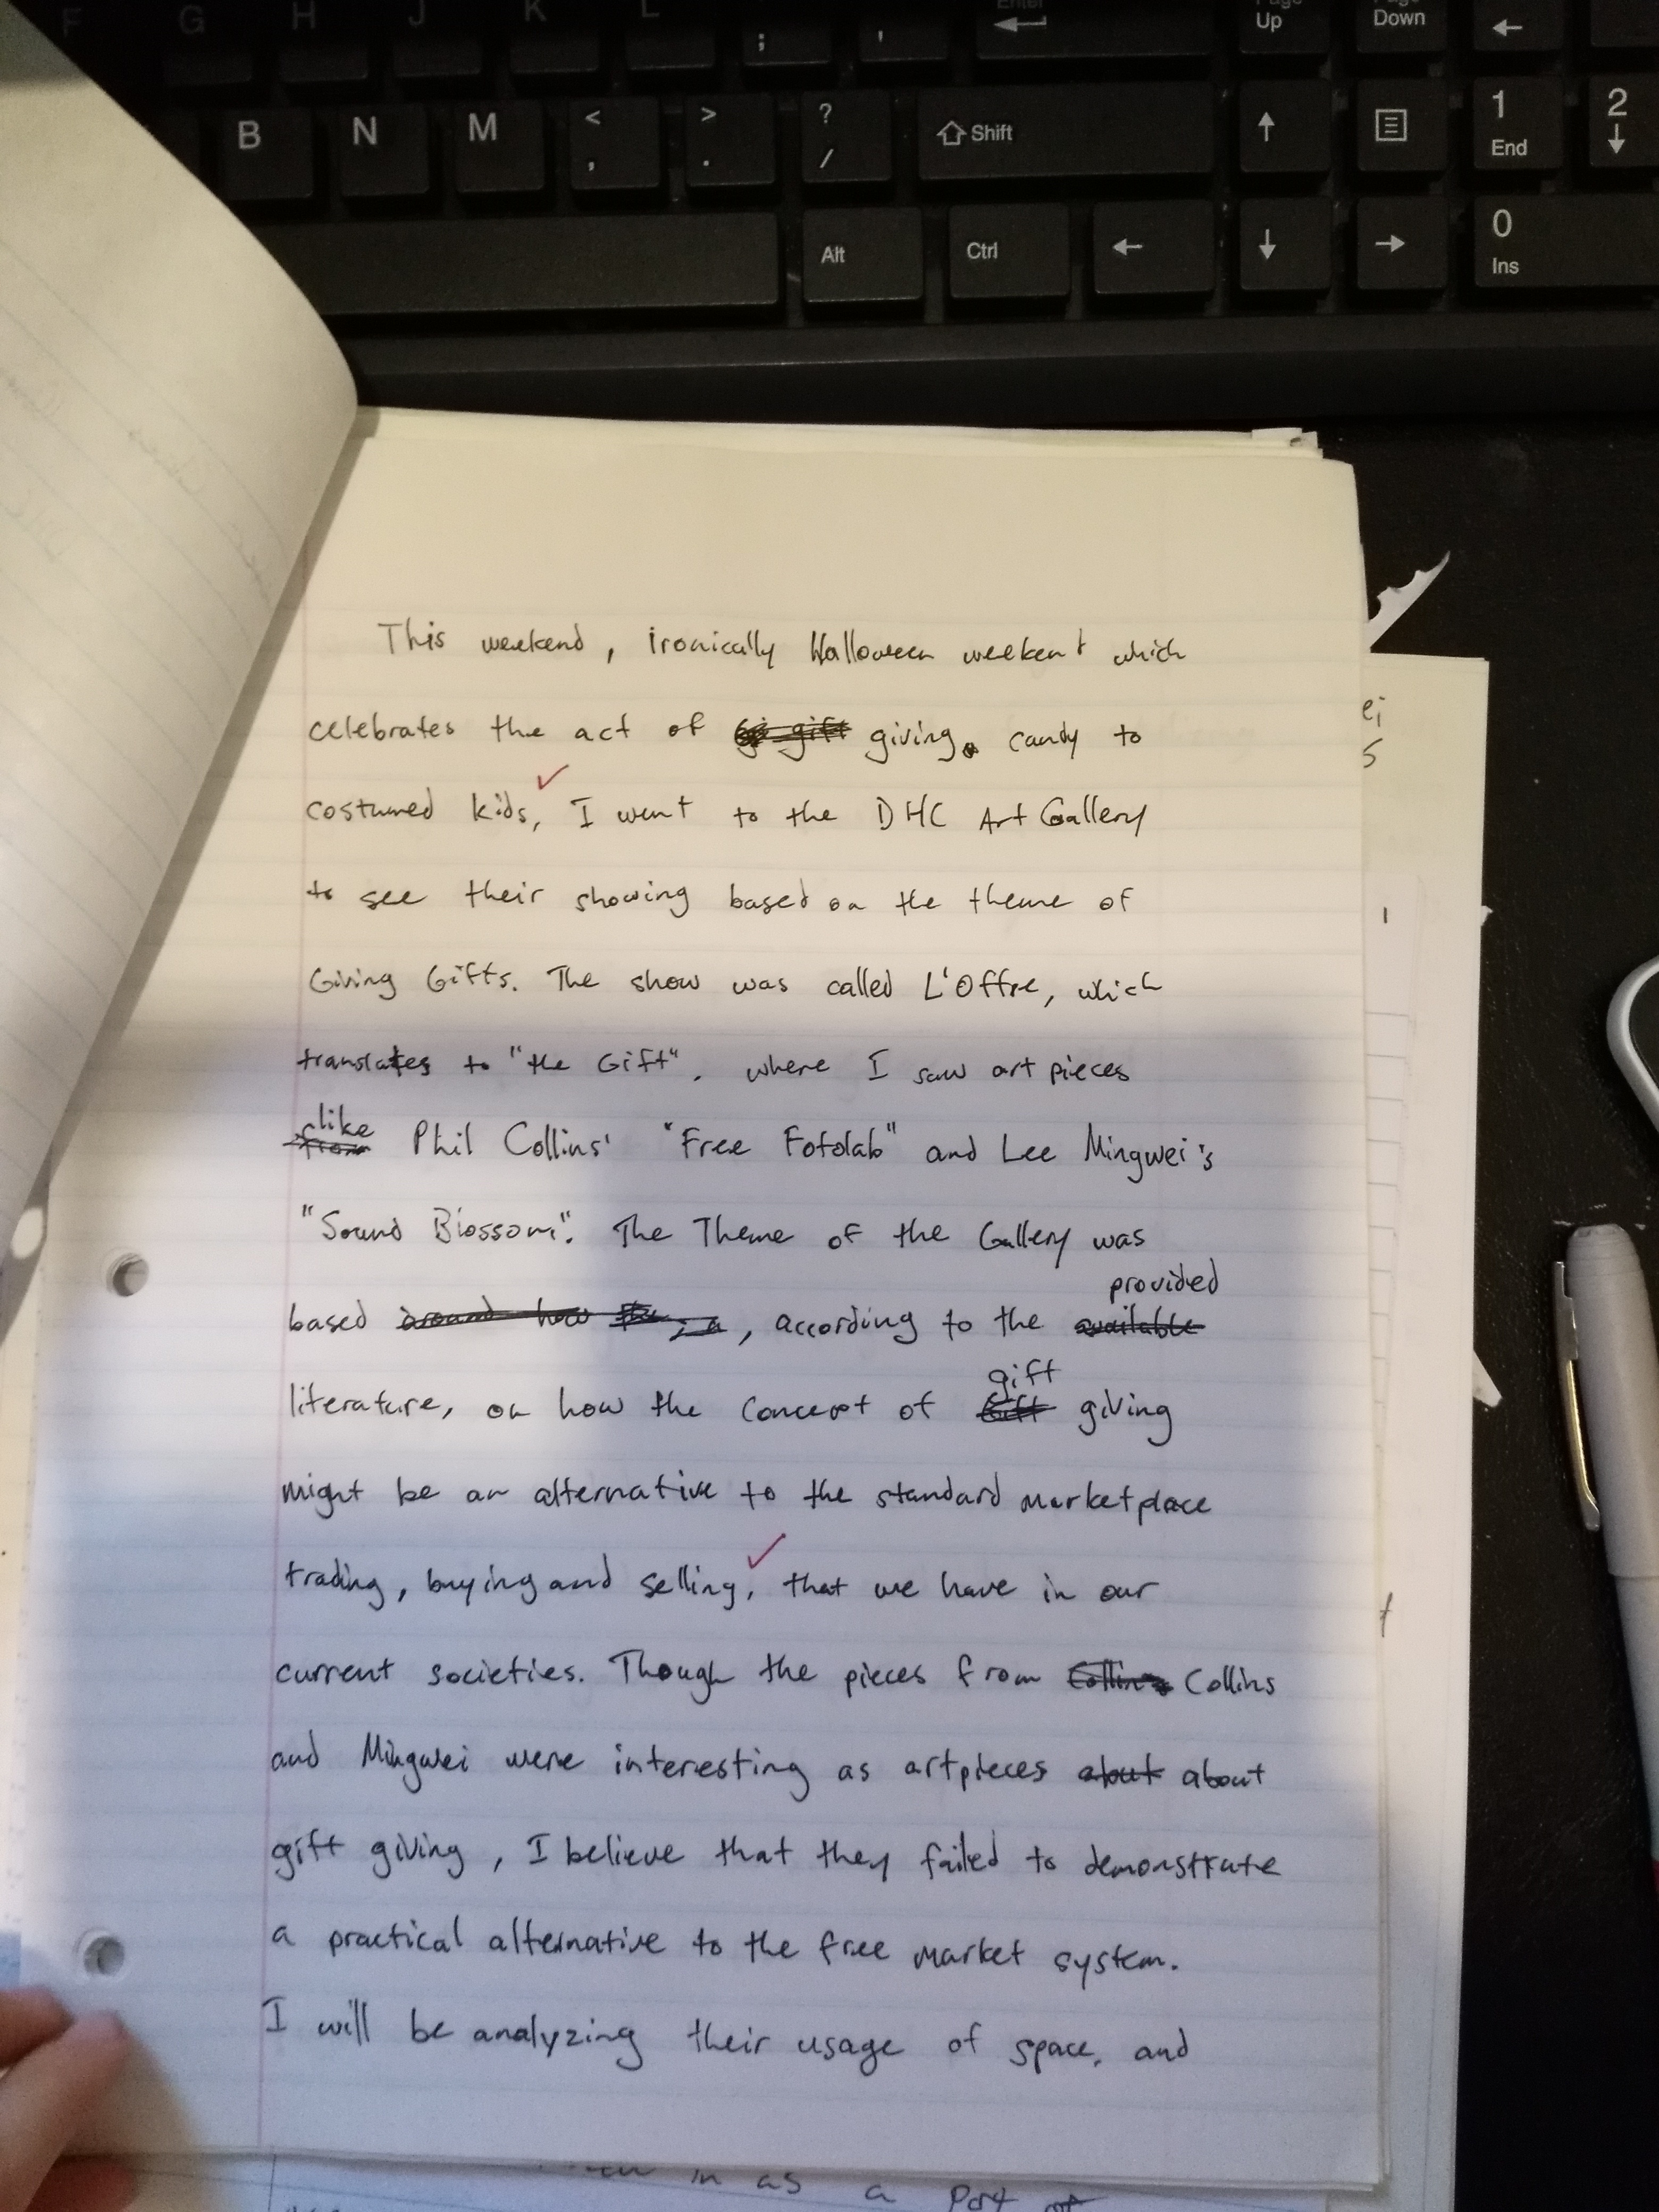 F G H J K L ; ' Enter Page Up Page Down
B N M < , > . ? / Shift 1 End 2
Alt Ctrl 0 Ins
This weekend, ironically Halloween weekent which
celebrates the act of giving candy to
costumed kids, I went to the DHC Art Gallery
to see their showing based on the theme of
Giving Gifts. The show was called L'Offre, which
translates to "the Gift", where I saw art pieces
like
from Phil Collins' "Free Fotolab" and Lee Mingwei's
"Sound Blossom". The Theme of the Gallery was
provided
based around how the , according to the available
gift
literature, on how the concept of Gift giving
might be an alternative to the standard marketplace
trading, buying and selling, that we have in our
current societies. Though the pieces from Collins Collins
and Mingwei were interesting as artpieces about about
gift giving, I believe that they failed to demonstrate
a practical alternative to the free market system.
I will be analyzing their usage of space, and
in as a Part of